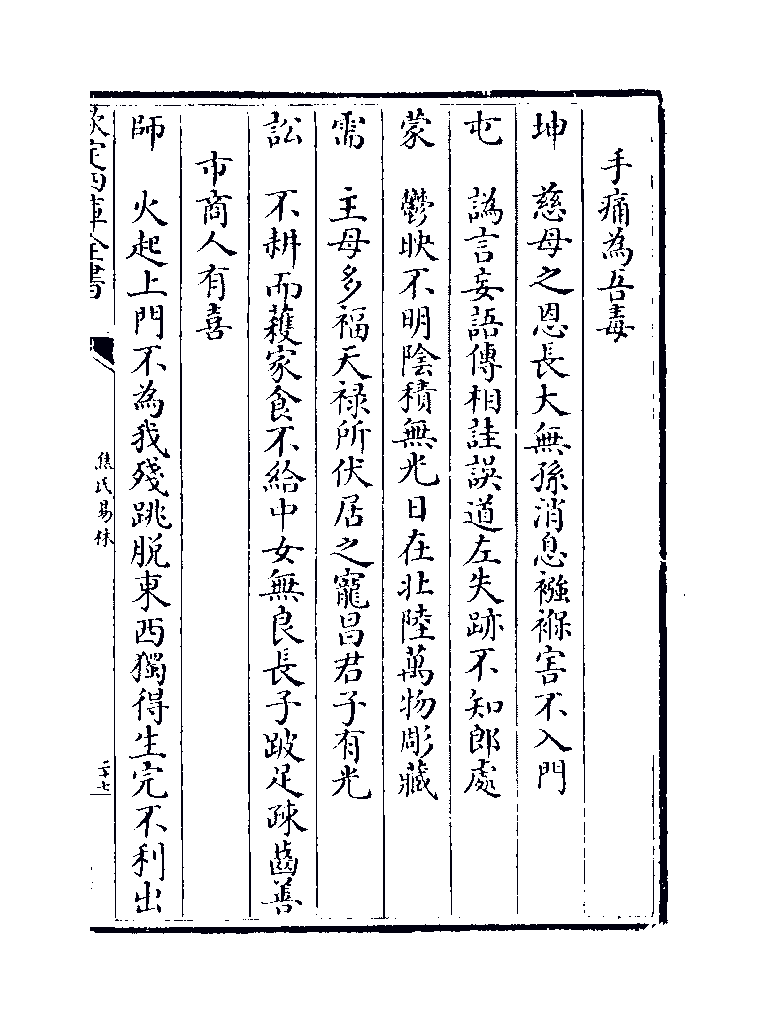 手痛為吾毒
坤　慈母之恩長大無孫消息襁褓害不入門
屯　譌言妄語傳相詿誤道左失跡不知郎處
蒙　鬱映不明陰積無光日在北陸萬物彫藏
需　主母多福天禄所伏居之寵昌君子有光
訟　不耕而䕶家食不給中女無良長子跛足疎齒善
市商人有喜
師　火起上門不為我殘跳脫東西獨得生完不利出
欽定四庫全書
焦氏易林
二十七